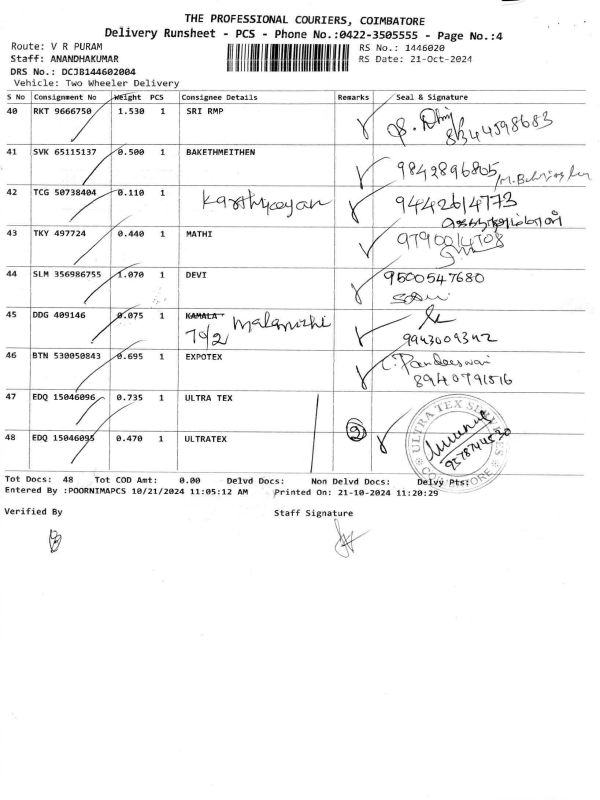 THE PROFESSIONAL COURIERS, COIMBATORE
Delivery Runsheet - PCS - Phone No.:0422-3505555 - Page No.:4
Route: V R PURAM RS No.: 1446020
Staff: ANANDHAKUMAR RS Date: 21-Oct-2024
DRS No.: DCJB144602004
Vehicle: Two Wheeler Delivery
S No Consignment No Weight PCS Consignee Details Remarks Seal & Signature
40 RKT 9666750 1.530 1 SRI RMP
8344598683
41 SVK 65115137 0.500 1 BAKETHMEITHEN
9842896805
42 TCG 50738404 0.110 1 Karthikeyan 9442614773
43 TKY 497724 0.440 1 MATHI 9790014708
44 SLM 356986755 1.070 1 DEVI 9500547680
45 DDG 409146 0.075 1 KAMALA
70/2 Malarvizhi
9943009342
46 BTN 530050843 0.695 1 EXPOTEX
8940791516
47 EDQ 15046096 0.735 1 ULTRA TEX
48 EDQ 15046095 0.470 1 ULTRATEX 2
ULTRA TEX
COIMBATORE
Tot Docs: 48 Tot COD Amt: 0.00 Delvd Docs: Non Delvd Docs: Delvy Pts:
Entered By :POORNIMAPCS 10/21/2024 11:05:12 AM Printed On: 21-10-2024 11:20:29
Verified By Staff Signature